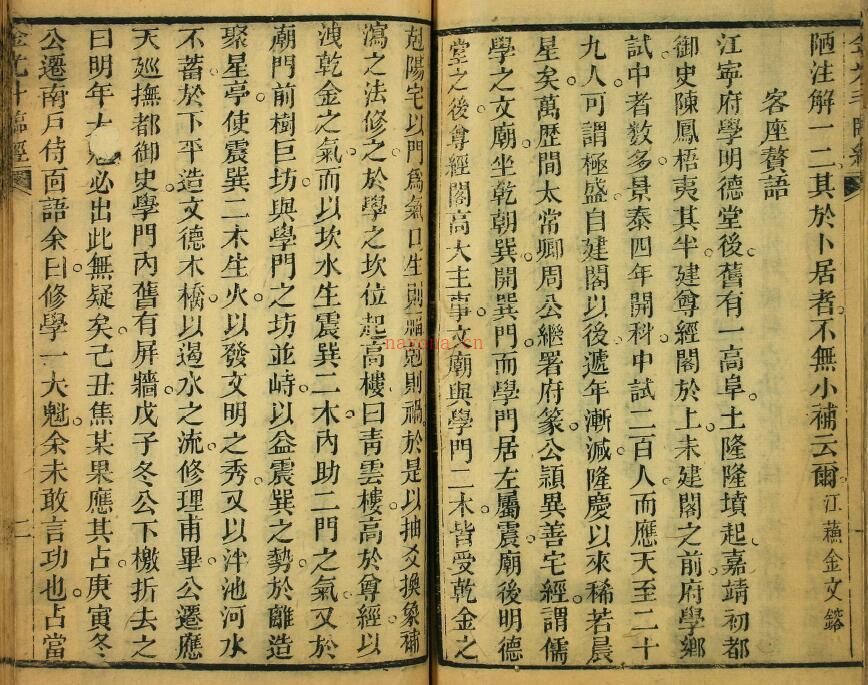 陋注解一二其於卜居者不無小補云爾 江蘇金文鎔
客座贅語
江寧府學明德堂後舊有一高阜土隆隆墳起嘉靖初都
御史陳鳳梧夷其半建尊經閣於上未建閣之前府學鄉
試中者數多景泰四年開科中試二百人而應天至二十
九人可謂極盛自建閣以後遞年漸減隆慶以來稀若晨
星矣萬歷間太常卿周公繼署府篆公頴異善宅經謂儒
學之文廟坐乾朝巽開巽門而學門居左屬震廟後明德
堂之後尊經閣高大主事文廟與學門二木皆受乾金之
尅陽宅以門爲氣口生則福尅則禍於是以抽爻換象補
瀉之法修之於學之坎位起高樓曰青雲樓高於尊經以
洩乾金之氣而以坎水生震巽二木內助二門之氣又於
廟門前樹巨坊與學門之坊並峙以益震巽之勢於離造
聚星亭使震巽二木生火以發文明之秀又以泮池河水
不蓄於下平造文德木橋以遏水之流修理甫畢公遷應
天廵撫都御史學門內舊有屏牆戊子冬公下檄折去之
曰明年大魁必出此無疑矣己丑焦某果應其占庚寅冬
公遷南戶侍面語余曰修學一大魁余未敢言功也占當
二
nayona.cn